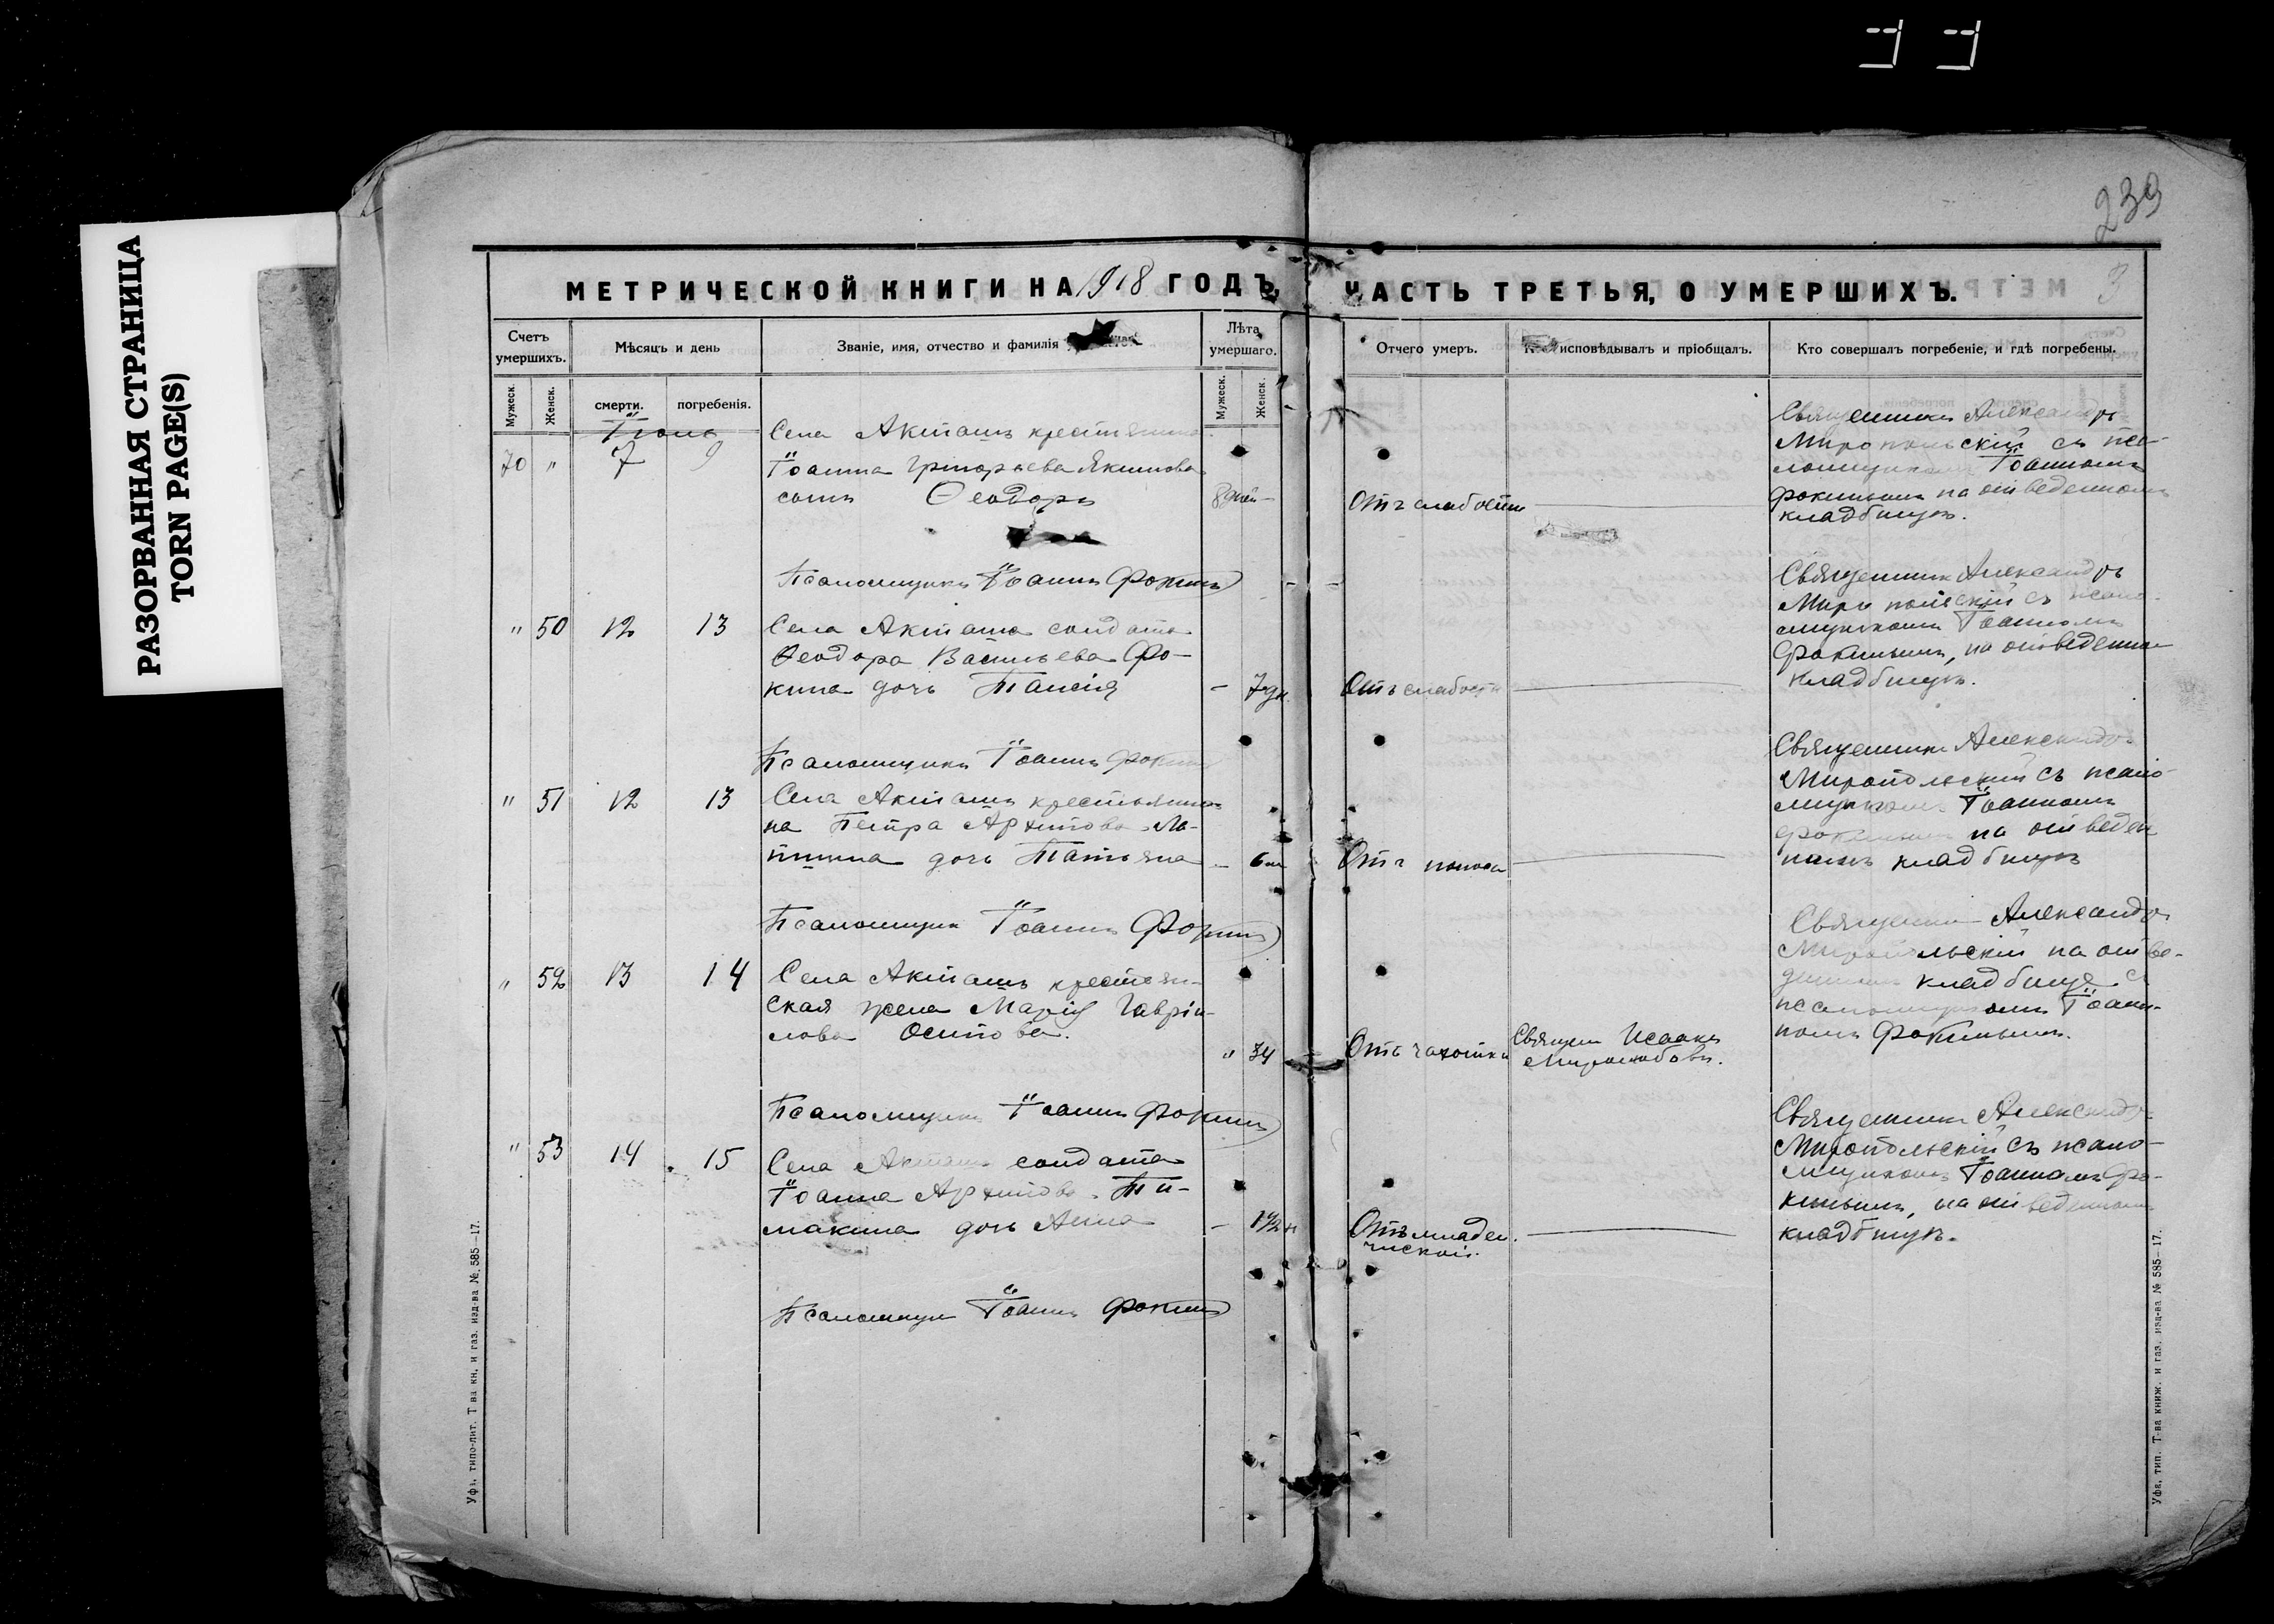 РАЗОРВАННАЯ СТРАНИЦА
TORN PAGE(S)
239
3
МЕТРИЧЕСКОЙ КНИГИ НА 1918 ГОДЪ, ЧАСТЬ ТРЕТЬЯ, О УМЕРШИХЪ.
Счетъ умершихъ.
Мѣсяцъ и день
Званіе, имя, отчество и фамилія
Лѣта умершаго.
Отчего умеръ.
исповѣдывалъ и пріобщалъ.
Кто совершалъ погребеніе, и гдѣ погребены.
Мужеск.
Женск.
смерти.
погребенія.
Мужеск.
Женск.
70 " 7 9
Села Акташъ крестьянина
Іоанна Григорьева Якимова
сынъ Ѳеодоръ
8 дней
Отъ слабости
Священникъ Александръ
Миропольскій съ пса-
ломщикомъ Іоанномъ
Фокинымъ на отведенномъ
кладбищѣ.
Псаломщикъ Іоаннъ Фокинъ
" 50 12 13
Села Акташа солдата
Ѳеодора Васильева Фо-
кина дочь Таисія
- 7 дн.
Отъ слабости
Священникъ Александръ
Миропольскій съ псало-
мщикомъ Іоанномъ
Фокинымъ, на отведенном
кладбищѣ.
Псаломщикъ Іоаннъ Фокинъ
" 51 12 13
Села Акташъ крестьяни-
на Петра Архипова
дочь Татьяна
- 6 м
Отъ поноса
Священникъ Александръ
Миропольскій съ псало-
мщикомъ Іоанномъ
Фокинымъ на отведен
номъ кладбищѣ
Псаломщикъ Іоаннъ Фокинъ
" 52 13 14
Села Акташъ крестьян-
ская жена Марія Гаврии-
лова Осипова.
" 34
Отъ чахотки
Священ Исаакъ
Священник Александръ
Миропольскій на отве-
денномъ кладбище съ
псаломщикомъ Іоан-
номъ Фокинымъ.
Псаломщикъ Іоаннъ Фокинъ
" 53 14 15
Села Акташъ солдата
Іоанна Архипова Ти-
макина дочь Анна
- 1 1/2 н
Отъ младен.
ческой.
Священникъ Александръ
Миропольскій съ псало-
мщикомъ Іоанномъ Фо-
кинымъ, на отведенномъ
кладбищѣ.
Псаломщикъ Іоаннъ Фокинъ
Уфа, типо-лит. Т ва кн. и газ. изд-ва № 585—17.
Уфа, тип. Т-ва книж. и газ. изд-ва № 585—17.